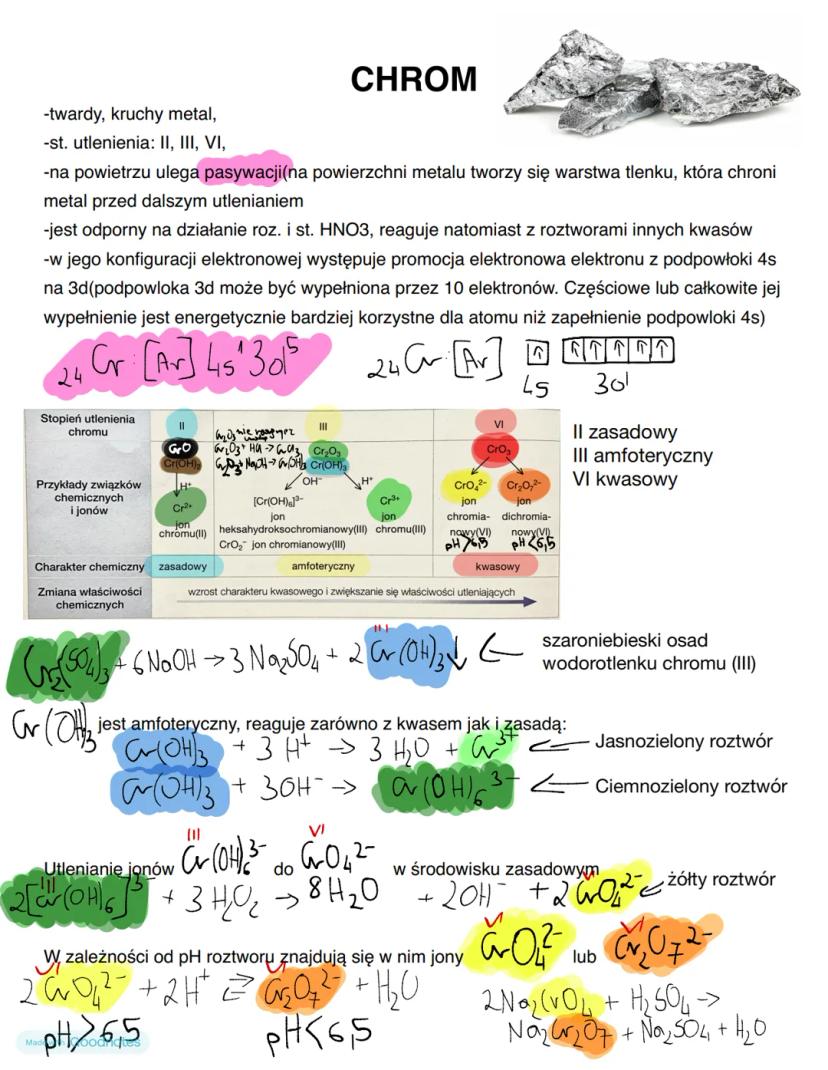 CHROM
-twardy, kruchy metal,
-st. utlenienia: II, III, VI,
-na powietrzu ulega pasywacji(na powierzchni metalu tworzy się warstwa tlenku, która chroni
metal przed dalszym utlenianiem
-jest odporny na działanie roz. i st. HNO3, reaguje natomiast z roztworami innych kwasów
-w jego konfiguracji elektronowej występuje promocja elektronowa elektronu z podpowłoki 4s
na 3d(podpowloka 3d może być wypełniona przez 10 elektronów. Częściowe lub całkowite jej
wypełnienie jest energetycznie bardziej korzystne dla atomu niż zapełnienie podpowloki 4s)
₂₄Cr: [Ar] 4s¹3d⁵
₂₄Cr [Ar] ↑ ↑↑↑↑↑
4s 3d
Stopień utlenienia chromu II III VI
II zasadowy
III amfoteryczny
VI kwasowy
Przykłady związków chemicznych i jonów
CrO
Cr(OH)₂
H⁺
Cr²⁺
jon
chromu(II)
Cr₂O₃ nie reaguje z wodą
Cr₂O₃ + HCl → CrCl₃
Cr₂O₃
Cr(OH)₃
OH⁻ H⁺
[Cr(OH)₆]³⁻
jon
heksahydroksochromianowy(III)
CrO₂⁻ jon chromianowy(III)
Cr³⁺
jon
chromu(III)
CrO₃
CrO₄²⁻
jon
chromia-
nowy(VI)
pH>6,5
Cr₂O₇²⁻
jon
dichromia-
nowy(VI)
pH<6,5
Charakter chemiczny zasadowy amfoteryczny kwasowy
Zmiana właściwości chemicznych
wzrost charakteru kwasowego i zwiększanie się właściwości utleniających
Cr₂(SO₄)₃ + 6NaOH → 3Na₂SO₄ + 2Cr(OH)₃↓ ←
III
szaroniebieski osad
wodorotlenku chromu (III)
Cr(OH)₃ jest amfoteryczny, reaguje zarówno z kwasem jak i zasadą:
Cr(OH)₃ + 3H⁺ → 3H₂O + Cr³⁺ ← Jasnozielony roztwór
Cr(OH)₃ + 3OH⁻ → Cr(OH)₆³⁻ ← Ciemnozielony roztwór
III VI
Utlenianie jonów Cr(OH)₆³⁻ do CrO₄²⁻ w środowisku zasadowym
III VI
2[Cr(OH)₆]³⁻ + 3H₂O₂ → 8H₂O + 2OH⁻ + 2CrO₄²⁻ ← żółty roztwór
VI VI
W zależności od pH roztworu znajdują się w nim jony CrO₄²⁻ lub Cr₂O₇²⁻
VI VI
2CrO₄²⁻ + 2H⁺ ⇄ Cr₂O₇²⁻ + H₂O
pH>6,5 pH<6,5
2Na₂CrO₄ + H₂SO₄ →
Na₂Cr₂O₇ + Na₂SO₄ + H₂O
Made with Goodnotes